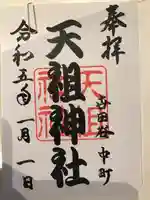 奉拝
世田谷 中町
天祖神社
天祖
神社
令和五年一月一日